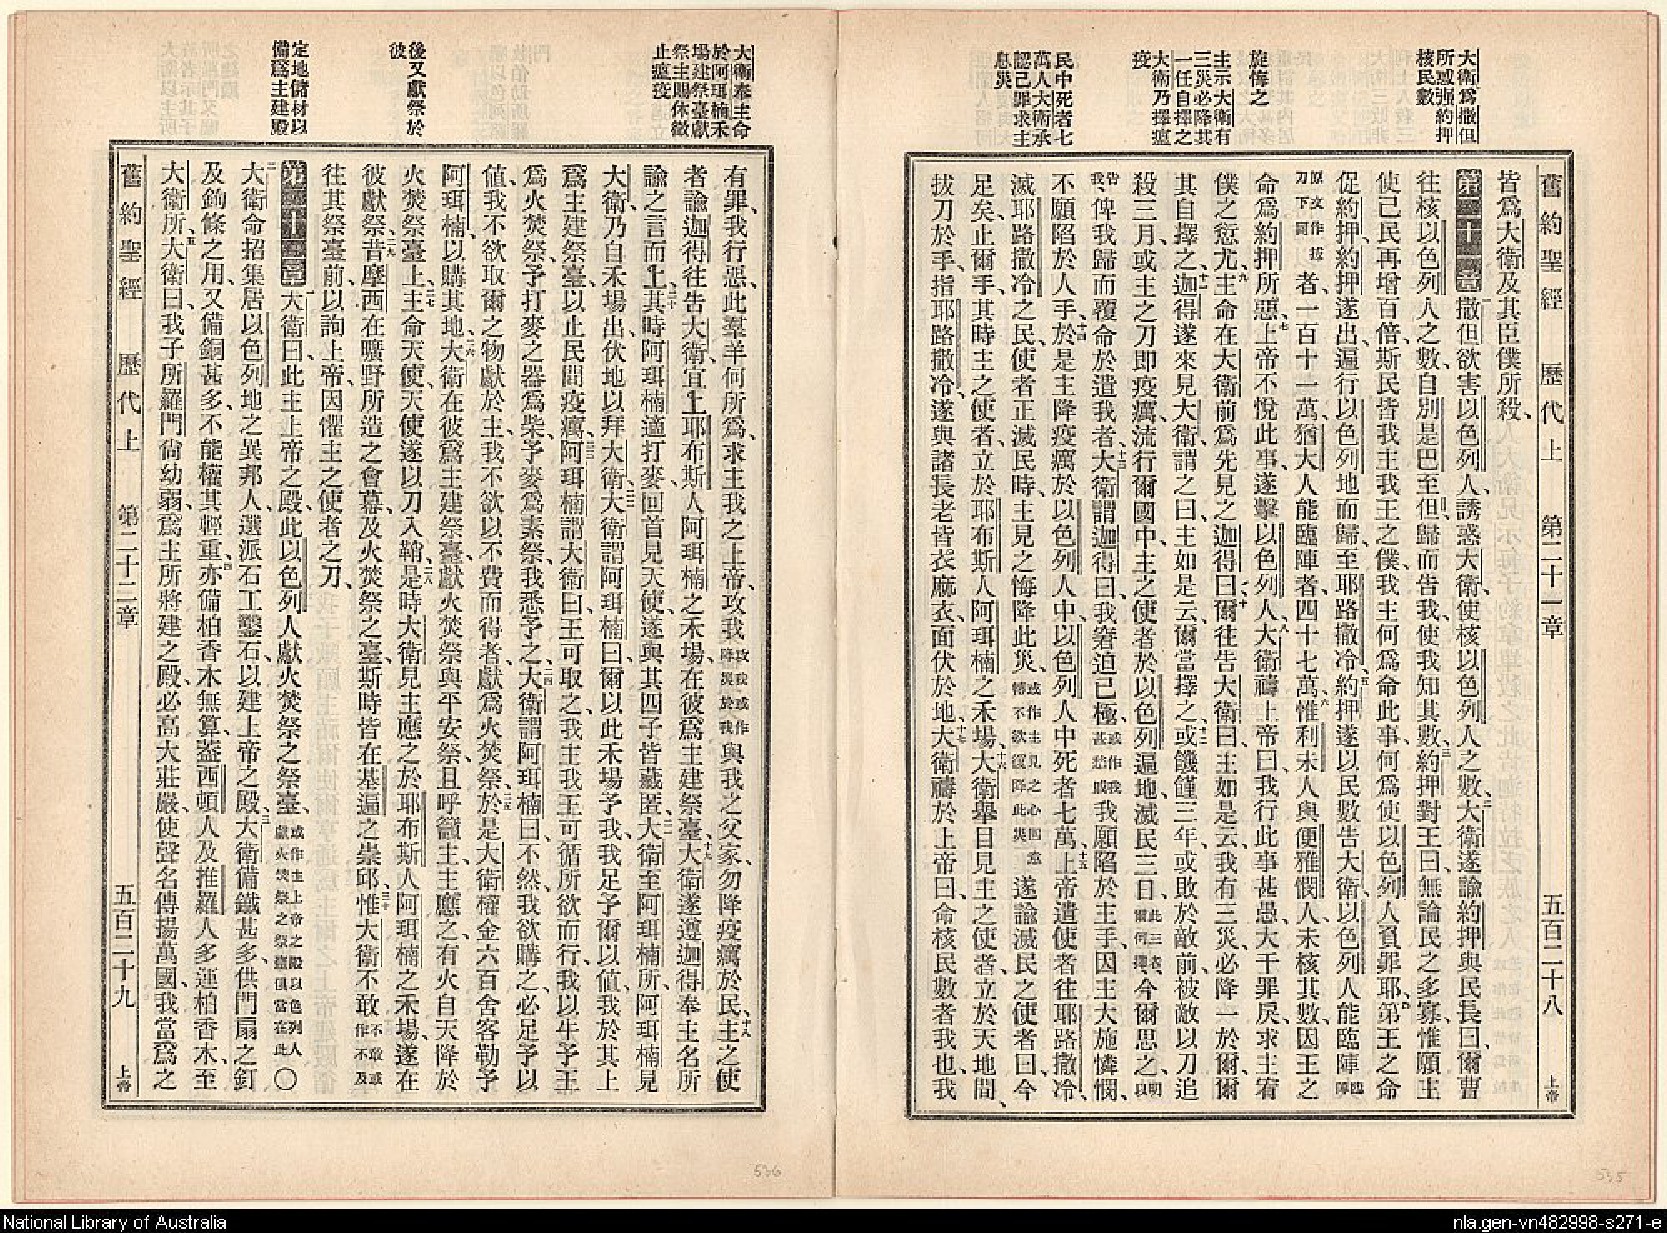 大衛爲撒但
所惑强約押
核民數
旋悔之
主示大衛有
三災必降其
一任自擇之
大衛乃擇瘟
疫
民中死者七
萬人大衛承
認己罪求主
息災
舊約聖經 歷代上 第二十一章 五百二十八 上帝
皆爲大衛及其臣僕所殺、
第二十一章 撒但欲害以色列人、誘惑大衛、使核以色列人之數、二大衛遂諭約押與民長曰、爾曹
往核以色列人之數、自別是巴至但、歸而告我、使我知其數、三約押對王曰、無論民之多寡、惟願主
使己民再增百倍、斯民皆我主我王之僕、我主何爲命此事、何爲使以色列人負罪耶、四第王之命
促約押、約押遂出、遍行以色列地而歸、至耶路撒冷、五約押遂以民數告大衛、以色列人能臨陣臨陣
原文作拔刀下同者、一百十一萬、猶大人能臨陣者、四十七萬、六惟利未人與便雅憫人未核其數、因王之
命爲約押所惡、七上帝不悅此事、遂擊以色列人、八大衛禱上帝曰、我行此事甚愚、大干罪戾、求主宥
僕之愆尤、九主命在大衛前爲先見之迦得曰、十爾往告大衛曰、主如是云、我有三災、必降一於爾、爾
其自擇之、十一迦得遂來見大衛、謂之曰、主如是云、爾當擇之、十二或饑饉三年、或敗於敵前、被敵以刀追
殺三月、或主之刀即疫癘流行爾國中、主之使者於以色列遍地滅民三日、此三者爾何擇、今爾思之、以明
告我俾我歸而覆命於遣我者、十三大衛謂迦得曰、我窘迫已極、或作我甚愁戚我願陷於主手、因主大施憐憫、
不願陷於人手、十四於是主降疫癘於以色列人中、以色列人中死者七萬、十五上帝遣使者往耶路撒冷、
滅耶路撒冷之民、使者正滅民時、主見之、悔降此災、或作主見之心回意轉不欲復降此災遂諭滅民之使者曰、今
足矣、止爾手、其時主之使者、立於耶布斯人阿珥楠之禾場、十六大衛舉目、見主之使者、立於天地間、
拔刀於手、指耶路撒冷、遂與諸長老皆衣麻衣、面伏於地、十七大衛禱於上帝曰、命核民數者我也、我
535
大衛奉主命
於阿珥楠禾
場建祭臺獻
祭主賜休徵
止瘟疫
後又獻祭於
彼
定地儲材以
備爲主建殿
有罪、我行惡、此羣羊何所爲、求主我之上帝、攻我攻我或作降災於我與我之父家、勿降疫癘於民、十八主之使
者諭迦得往告大衛、宜上耶布斯人阿珥楠之禾場、在彼爲主建祭臺、十九大衛遂遵迦得奉主名所
諭之言而上、二十其時阿珥楠適打麥、回首見天使、遂與其四子皆藏匿、二一大衛至阿珥楠所、阿珥楠見
大衛、乃自禾場出、伏地以拜大衛、二二大衛謂阿珥楠曰、爾以此禾場予我、我足予爾以值、我於其上
爲主建祭臺、以止民間疫癘、二三阿珥楠謂大衛曰、王可取之、我主我王可循所欲而行、我以牛予王
爲火焚祭、予打麥之器爲柴、予麥爲素祭、我悉予之、二四大衛謂阿珥楠曰、不然、我欲購之、必足予以
值、我不欲取爾之物獻於主、我不欲以不費而得者、獻爲火焚祭、二五於是大衛權金六百舍客勒予
阿珥楠、以購其地、二六大衛在彼爲主建祭臺、獻火焚祭與平安祭、且呼籲主、主應之、有火自天降於
火焚祭臺上、二七主命天使、天使遂以刀入鞘、二八是時大衛見主應之於耶布斯人阿珥楠之禾場、遂在
彼獻祭、二九昔摩西在曠野所造之會幕、及火焚祭之臺、斯時皆在基遍之崇邱、三十惟大衛不敢不敢或作不及
往其祭臺前、以詢上帝、因懼主之使者之刀、
第二十二章 一大衛曰、此主上帝之殿、此以色列人獻火焚祭之祭臺、或作主上帝之殿以色列人獻火焚祭之祭臺俱當在此〇
二大衛命招集居以色列地之異邦人、選派石工鑿石、以建上帝之殿、三大衛備鐵甚多、供門扇之釘
及鉤條之用、又備銅甚多、不能權其輕重、四亦備柏香木無算、蓋西頓人及推羅人多運柏香木至
大衛所、五大衛曰、我子所羅門、尙幼弱、爲主所將建之殿、必高大莊嚴、使聲名傳揚萬國、我當爲之
舊約聖經 歷代上 第二十二章 五百二十九 上帝
536
National Library of Australia
nla.gen-vn482998-s271-e